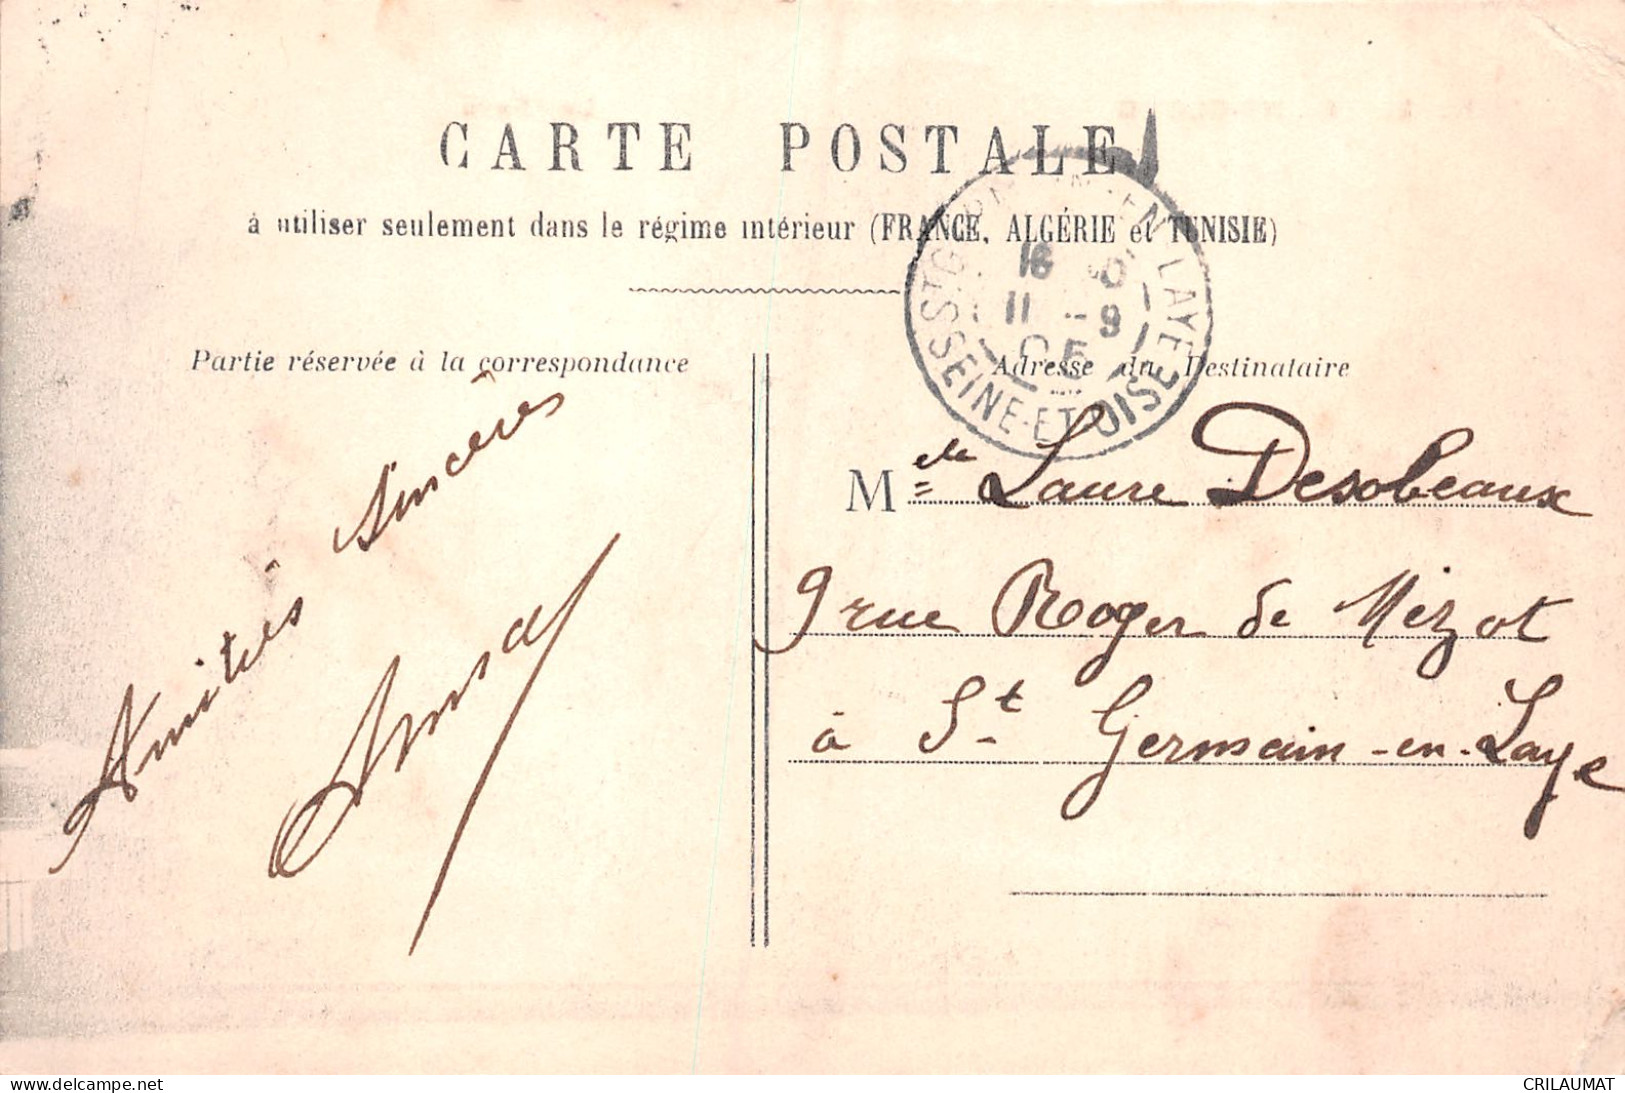 CARTE POSTALE
à utiliser seulement dans le régime intérieur (FRANCE, ALGÉRIE et TUNISIE)
ST GERMAIN-EN-LAYE
11 -9
05
SEINE-ET-OISE
Partie réservée à la correspondance
Adresse du Destinataire
Amitiés sincères
Melle Laure Desobeaux
9 rue Roger de Nézot
à St Germain-en-Laye
www.delcampe.net
CRILAUMAT